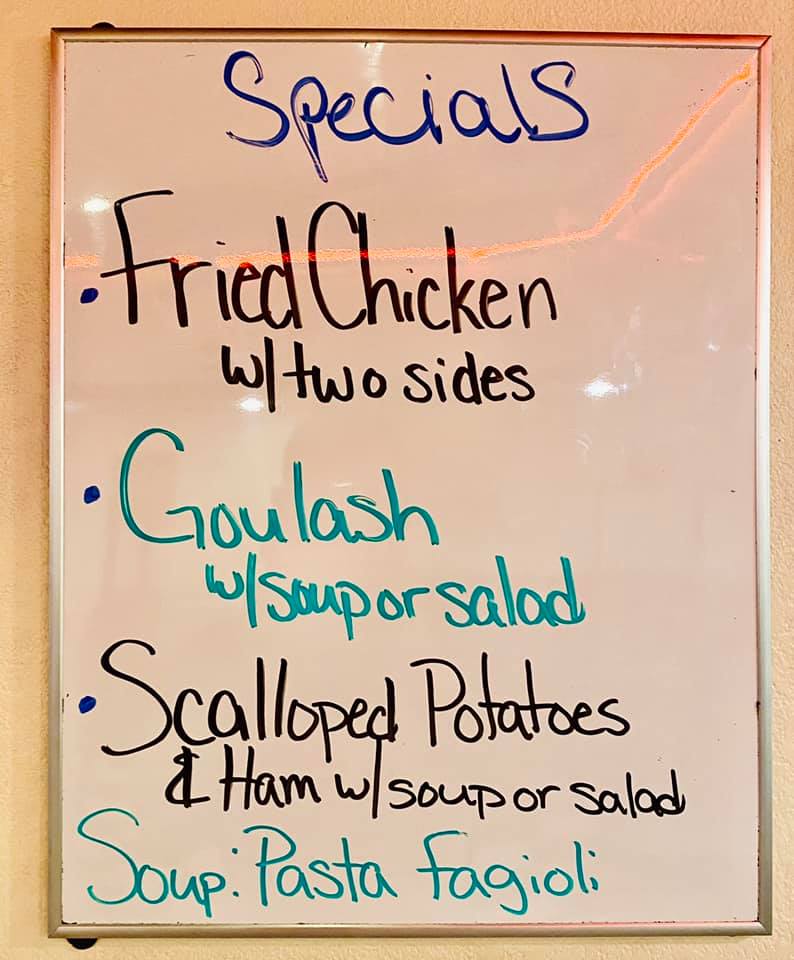 Specials
• Fried Chicken
w/two sides
• Goulash
w/soup or salad
• Scalloped Potatoes
& Ham w/soup or salad
Soup: Pasta fagioli